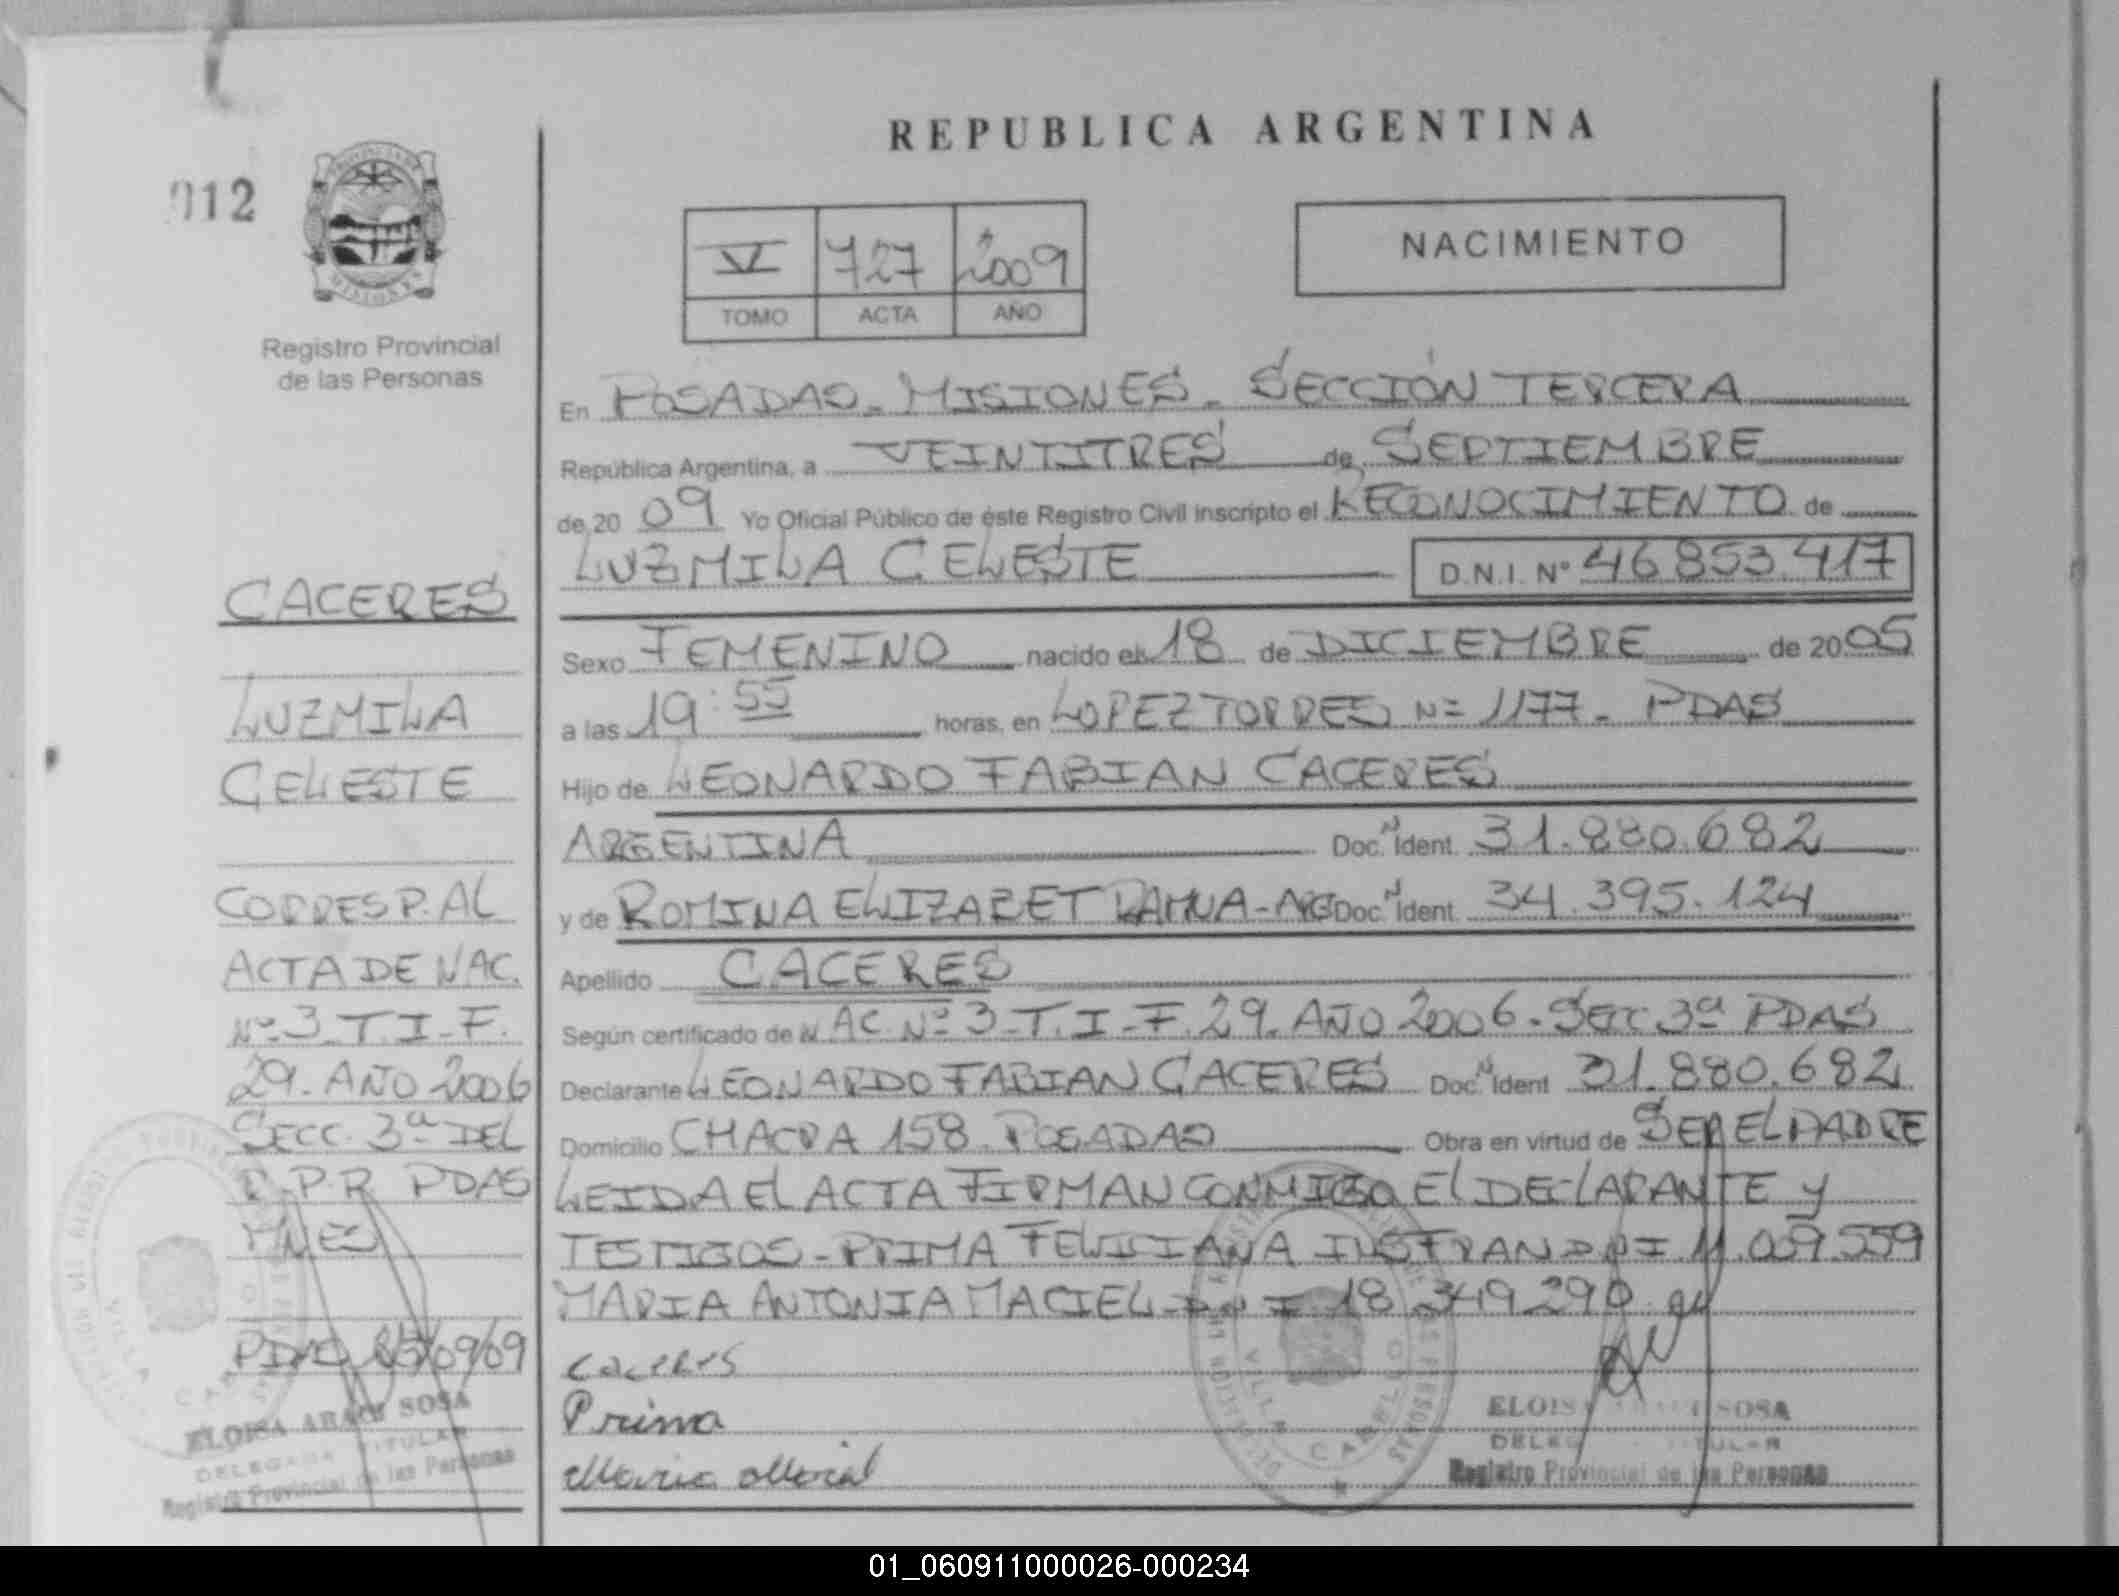 REPUBLICA ARGENTINA
012
VI 727 2009
TOMO ACTA AÑO
NACIMIENTO
Registro Provincial
de las Personas
En POSADAS - MISIONES - SECCIÓN TERCERA
República Argentina, a VEINTITRES de SEPTIEMBRE
de 20 09 Yo Oficial Público de éste Registro Civil inscripto el RECONOCIMIENTO de
LUZMILA CELESTE D.N.I. Nº 46.853.417
Sexo FEMENINO nacido el 18 de DICIEMBRE de 2005
a las 19:55 horas, en LOPEZ TORRES Nº 1177 - PDAS
Hijo de LEONARDO FABIAN CACERES
ARGENTINA Doc. N Ident. 31.880.682
y de ROMINA ELIZABET - ARG Doc. N Ident. 34.395.124
Apellido CACERES
Según certificado de NAC. Nº 3 - T. I - F. 29. AÑO 2006 - SECC 3ª PDAS
Declarante LEONARDO FABIAN CACERES Doc. N Ident 31.880.682
Domicilio CHACRA 158 - POSADAS Obra en virtud de SER EL PADRE
LEIDA EL ACTA FIRMAN CONMIGO EL DECLARANTE Y
TESTIGOS - PRIMA FELICIANA DNI 11.059.559
MARIA ANTONIA MACIEL - DNI 18.349.290
Caceres
Prima
Maria
ELOISA ARACI SOSA
DELEGADA TITULAR
Registro Provincial de las Personas
CACERES
LUZMILA
CELESTE
CORRESP. AL
ACTA DE NAC.
Nº 3 - T. I - F.
29. AÑO 2006
SECC. 3ª DEL
R.P.P. PDAS
MNES
PDAS 09/09
ELOISA ARACI SOSA
DELEGADA TITULAR
Registro Provincial de las Personas
VILLA CABELLO
01_060911000026-000234